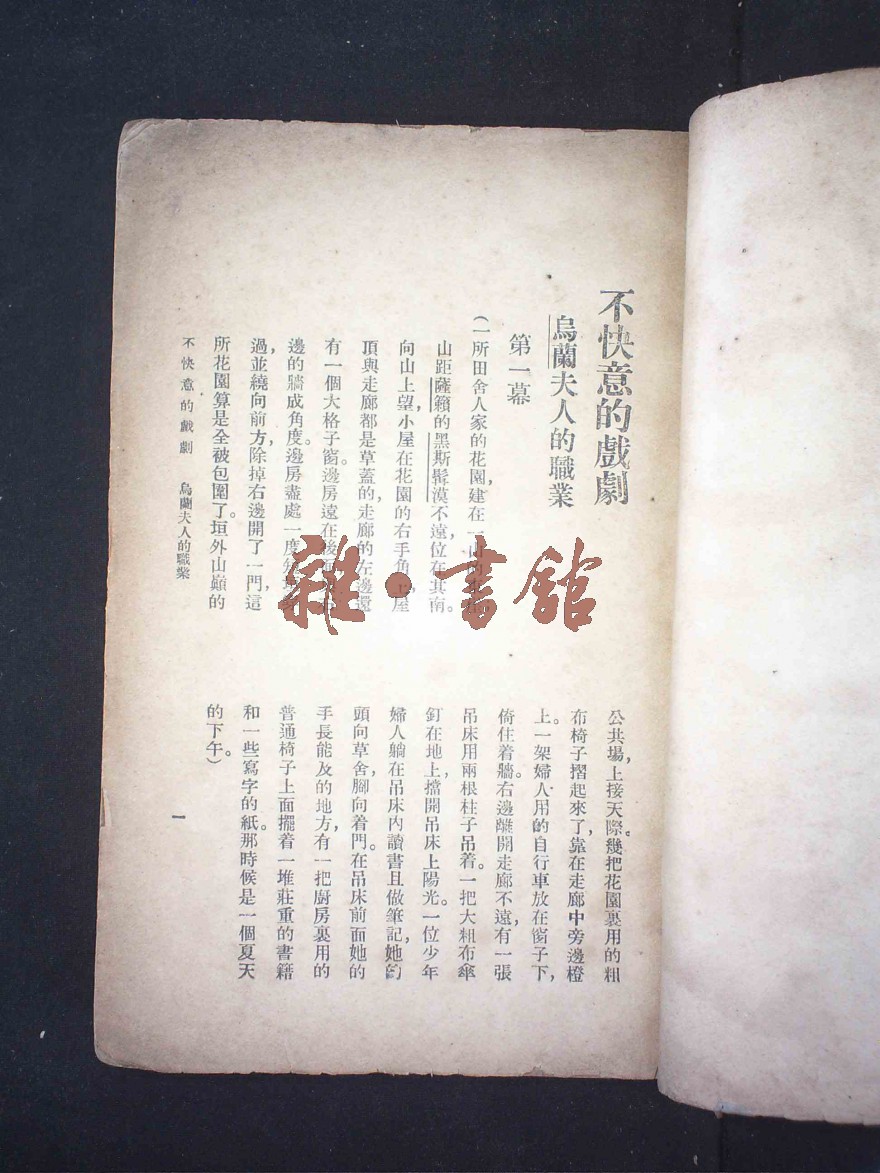 不快意的戲劇
烏蘭夫人的職業
第一幕
(一所田舍人家的花園,建在一山的
山距薩籟的黑斯髯漠不遠,位在其南。
向山上望,小屋在花園的右手角上,屋
頂與走廊都是草蓋的,走廊的左邊還
有一個大格子窗。邊房遠在後面
邊的牆成角度。邊房盡處一度
過,並繞向前方,除掉右邊開了一門,這
所花園算是全被包圍了。垣外山巔的
公共場,上接天際。幾把花園裏用的粗
布椅子摺起來了,靠在走廊中旁邊橙
上。一架婦人用的自行車放在窗子下,
倚住着牆。右邊離開走廊不遠,有一張
吊床用兩根柱子吊着。一把大粗布傘
釘在地上,擋開吊床上陽光。一位少年
婦人躺在吊床內讀書且做筆記,她的
頭向草舍,腳向着門。在吊床前面她的
手長能及的地方,有一把厨房裏用的
普通椅子上面擺着一堆莊重的書籍
和一些寫字的紙。那時候是一個夏天
的下午。)
不快意的戲劇 烏蘭夫人的職業
一
雜·書館